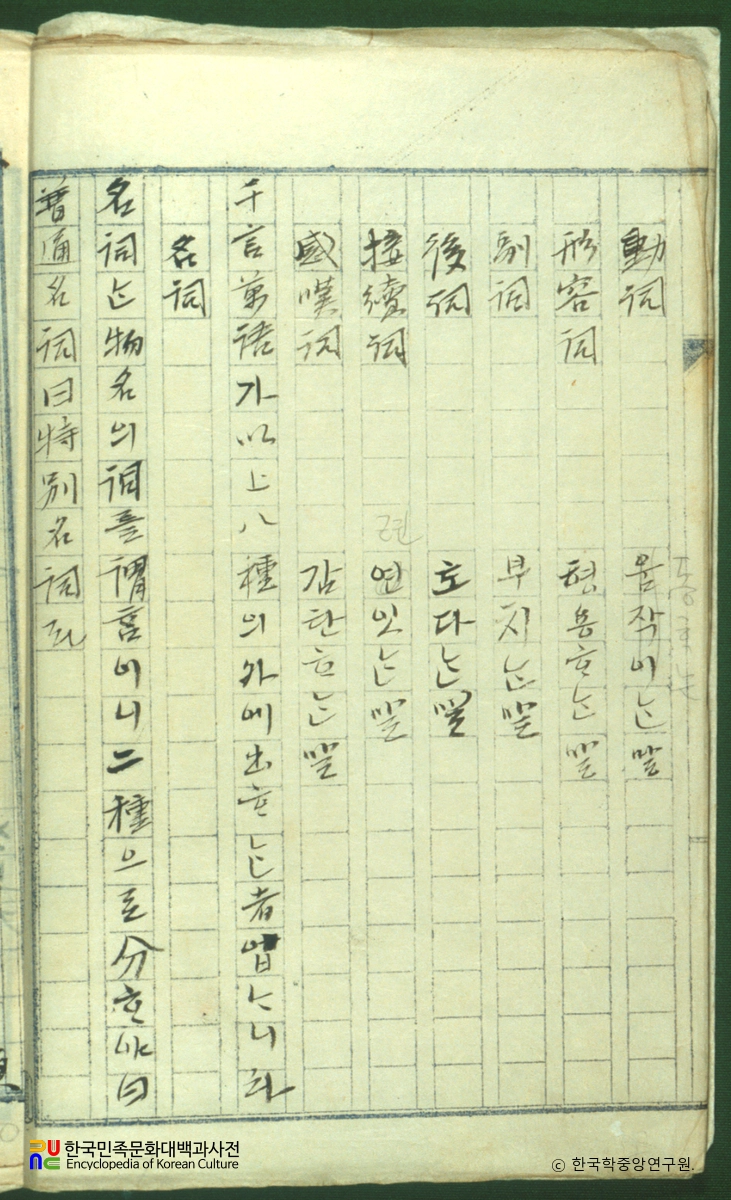 動詞 움작이ᄂᆞᆫ말
形容詞 형용ᄒᆞᄂᆞᆫ말
副詞 부치ᄂᆞᆫ말
後詞 토다ᄂᆞᆫ말
接續詞 연잇ᄂᆞᆫ말
感嘆詞 감탄ᄒᆞᄂᆞᆫ말
千言萬語가以上八種의外에出ᄒᆞᄂᆞᆫ者업ᄂᆞ니라
名詞
名詞ᄂᆞᆫ物名의詞를謂홈이니二種으로分ᄒᆞ야曰
普通名詞曰特別名詞라
한국민족문화대백과사전
Encyclopedia of Korean Culture
© 한국학중앙연구원.